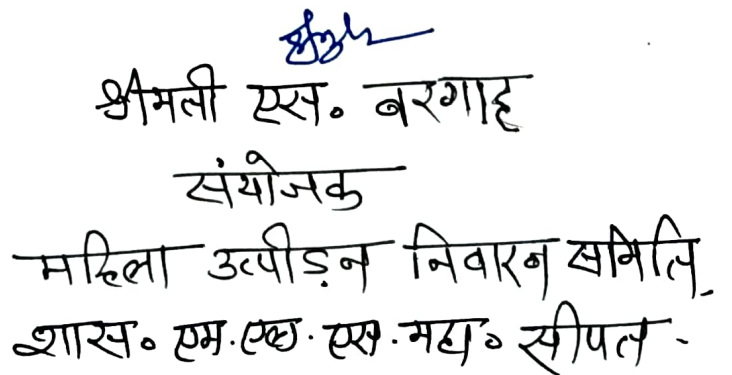 श्रीमती एस॰ बरगाह
संयोजक
महिला उत्पीड़न निवारन समिति,
शास॰ एम.एल. एस. महा॰ सीपत -